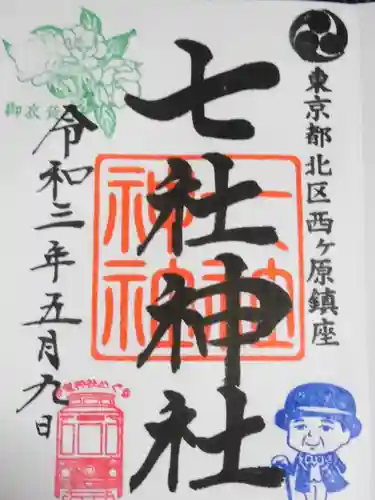 東京都北区西ヶ原鎮座
七社神社
令和三年五月九日
七社神社